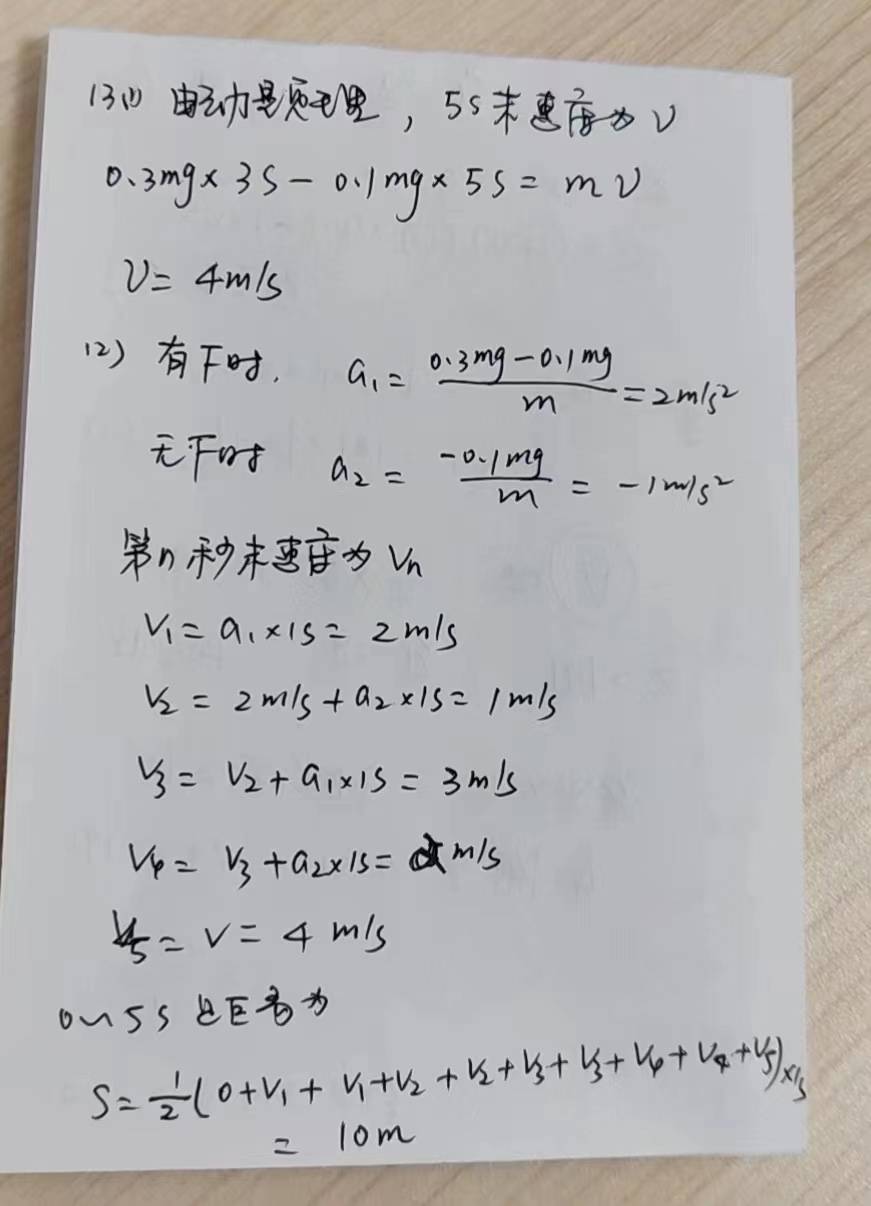 13(1) 由动力量定理，5s末速度为V
0.3mg×3s-0.1mg×5s=mV
V=4m/s
(2) 有F时. a₁=(0.3mg-0.1mg)/m=2m/s²
无F时 a₂=(-0.1mg)/m=-1m/s²
第n秒末速度为Vn
V₁=a₁×1s=2m/s
V₂=2m/s+a₂×1s=1m/s
V₃=V₂+a₁×1s=3m/s
V₄=V₃+a₂×1s=2m/s
V₅=V=4m/s
0~5s 距离为
S=1/2(0+V₁+V₁+V₂+V₂+V₃+V₃+V₄+V₄+V₅)×1s
=10m